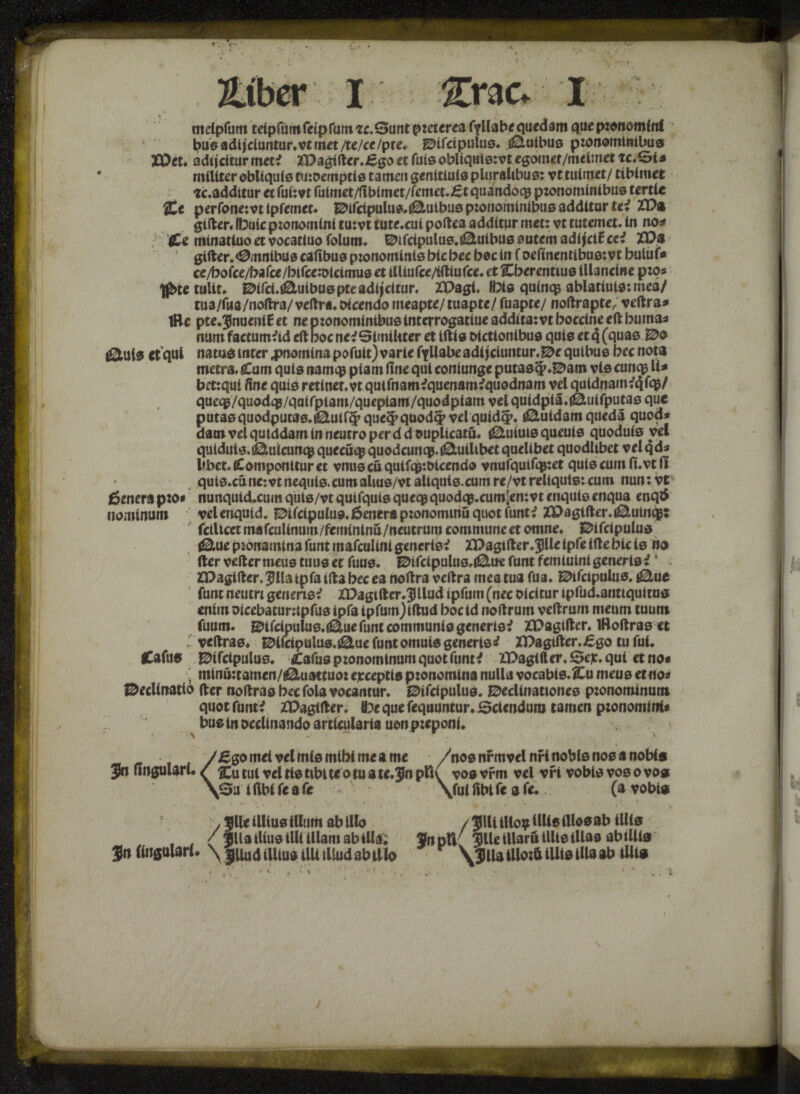 Liber I Trac. I
meipsum teipsum seipsum ⁊c. Sunt preterea syllabe quedam que pronomini
bus adijciuntur. vt met/te/ce/pte. Discipulus. Quibus pronominibus
Met. adijcitur met? Magister. Ego et suis obliquis: vt egomet/meimet ⁊c. Si⸗
militer obliquis tu: demptis tamen genitiuis pluralibus: vt tuimet/ tibimet
⁊c. additur et sui: vt suimet/sibimet/semet. Et quandoqꝫ pronominibus tertie
Te persone: vt ipsemet. Discipulus. Quibus pronominibus additur te? Ma
gister. Huic pronomini tu: vt tute. cui postea additur met: vt tutemet. in no⸗
Ce minatiuo et vocatiuo solum. Discipulus. Quibus autem adijcit̄ ce? Ma
gister. Omnibus casibus pronominis hic hec hoc in s desinentibus: vt huius⸗
ce/hosce/hasce/hisce: dicimus et illiusce/istiusce. et Therentius illancine pro⸗
Pte tulit. Disci. Quibus pte adijcitur. Magi. His quinqꝫ ablatiuis: mea/
tua/sua/nostra/ vestra. dicendo meapte/ tuapte/ suapte/ nostrapte, vestra⸗
Ne pte. Inuenit̄ et ne pronominibus interrogatiue addita: vt hoccine est huma⸗
num factum? id est hoc ne? Similiter et istis dictionibus quis et q̇ (quas Do
Quis et qui natus inter ꝓnomina posuit) varie syllabe adijciuntur. De quibus hec nota
metra. Cum quis namqꝫ piam sine qui coniunge putasqꝫ. Dam vis cunqꝫ li⸗
bet: qui sine quis retinet. vt quisnam? quenam? quodnam vel quidnam? q̇sqꝫ/
queqꝫ/quodqꝫ/quispiam/quepiam/quodpiam vel quidpiā. Quisputas que
putas quodputas. Quisqꝫ queqꝫ quodqꝫ vel quidqꝫ. Quidam quedā quod⸗
dam vel quiddam in neutro per d d duplicatū. Quiuis queuis quoduis vel
quiduis. Quicunqꝫ quecūqꝫ quodcunqꝫ. Quilibet quelibet quodlibet vel q̇d⸗
libet. Componitur et vnus cū quisqꝫ: dicendo vnusquisqꝫ: et quis cum si. vt si
quis. cū ne: vt nequis. cum alius/vt aliquis. cum re/vt reliquis: cum nun: vt
Genera pro⸗ nunquid. cum quis/vt quisquis queqꝫ quodqꝫ. cum en: vt enquis enqua enqd̄
nominum vel enquid. Discipulus. Genera pronominū quot sunt? Magister. Quinqꝫ:
scilicet masculinum/femininū/neutrum commune et omne. Discipulus
Que pronamina sunt masculini generis? Magister. Ille ipse iste hic is no
ster vester meus tuus et suus. Discipulus. Que sunt feminini generis?
Magister. Illa ipsa ista hec ea nostra vestra mea tua sua. Discipulus. Que
sunt neutri generis? Magister. Illud ipsum (nec dicitur ipsud. antiquitus
enim dicebatur: ipsus ipsa ipsum) istud hoc id nostrum vestrum meum tuum
suum. Discipulus. Que sunt communis generis? Magister. Nostras et
vestras. Discipulus. Que sunt omnis generis? Magister. Ego tu sui.
Casus Discipulus. Casus pronominum quot sunt? Magister. Sex. qui et no⸗
minū: tamen/Quattuor exceptis pronomina nulla vocabis. Tu meus et no⸗
Declinatio ster nostras hec sola vocantur. Discipulus. Declinationes pronominum
quot sunt? Magister. He que sequuntur. Sciendum tamen pronomini⸗
bus in declinando articularia non preponi.
In singulari. Ego mei vel mis mihi me a me In plī nos nr̄m vel nr̄i nobis nos a nobis
Tu tui vel tis tibi te o tu a te. vos vr̄m vel vr̄i vobis vos o vos
Su i sibi se a se sui sibi se a se. (a vobis
Ille illius illum ab illo Illi illoꝝ illis illos ab illis
In singulari. Illa illius illi illam ab illa: In plī Ille illarū illis illas ab illis
Illud illius illi illud ab illo Illa illorū illis illa ab illis